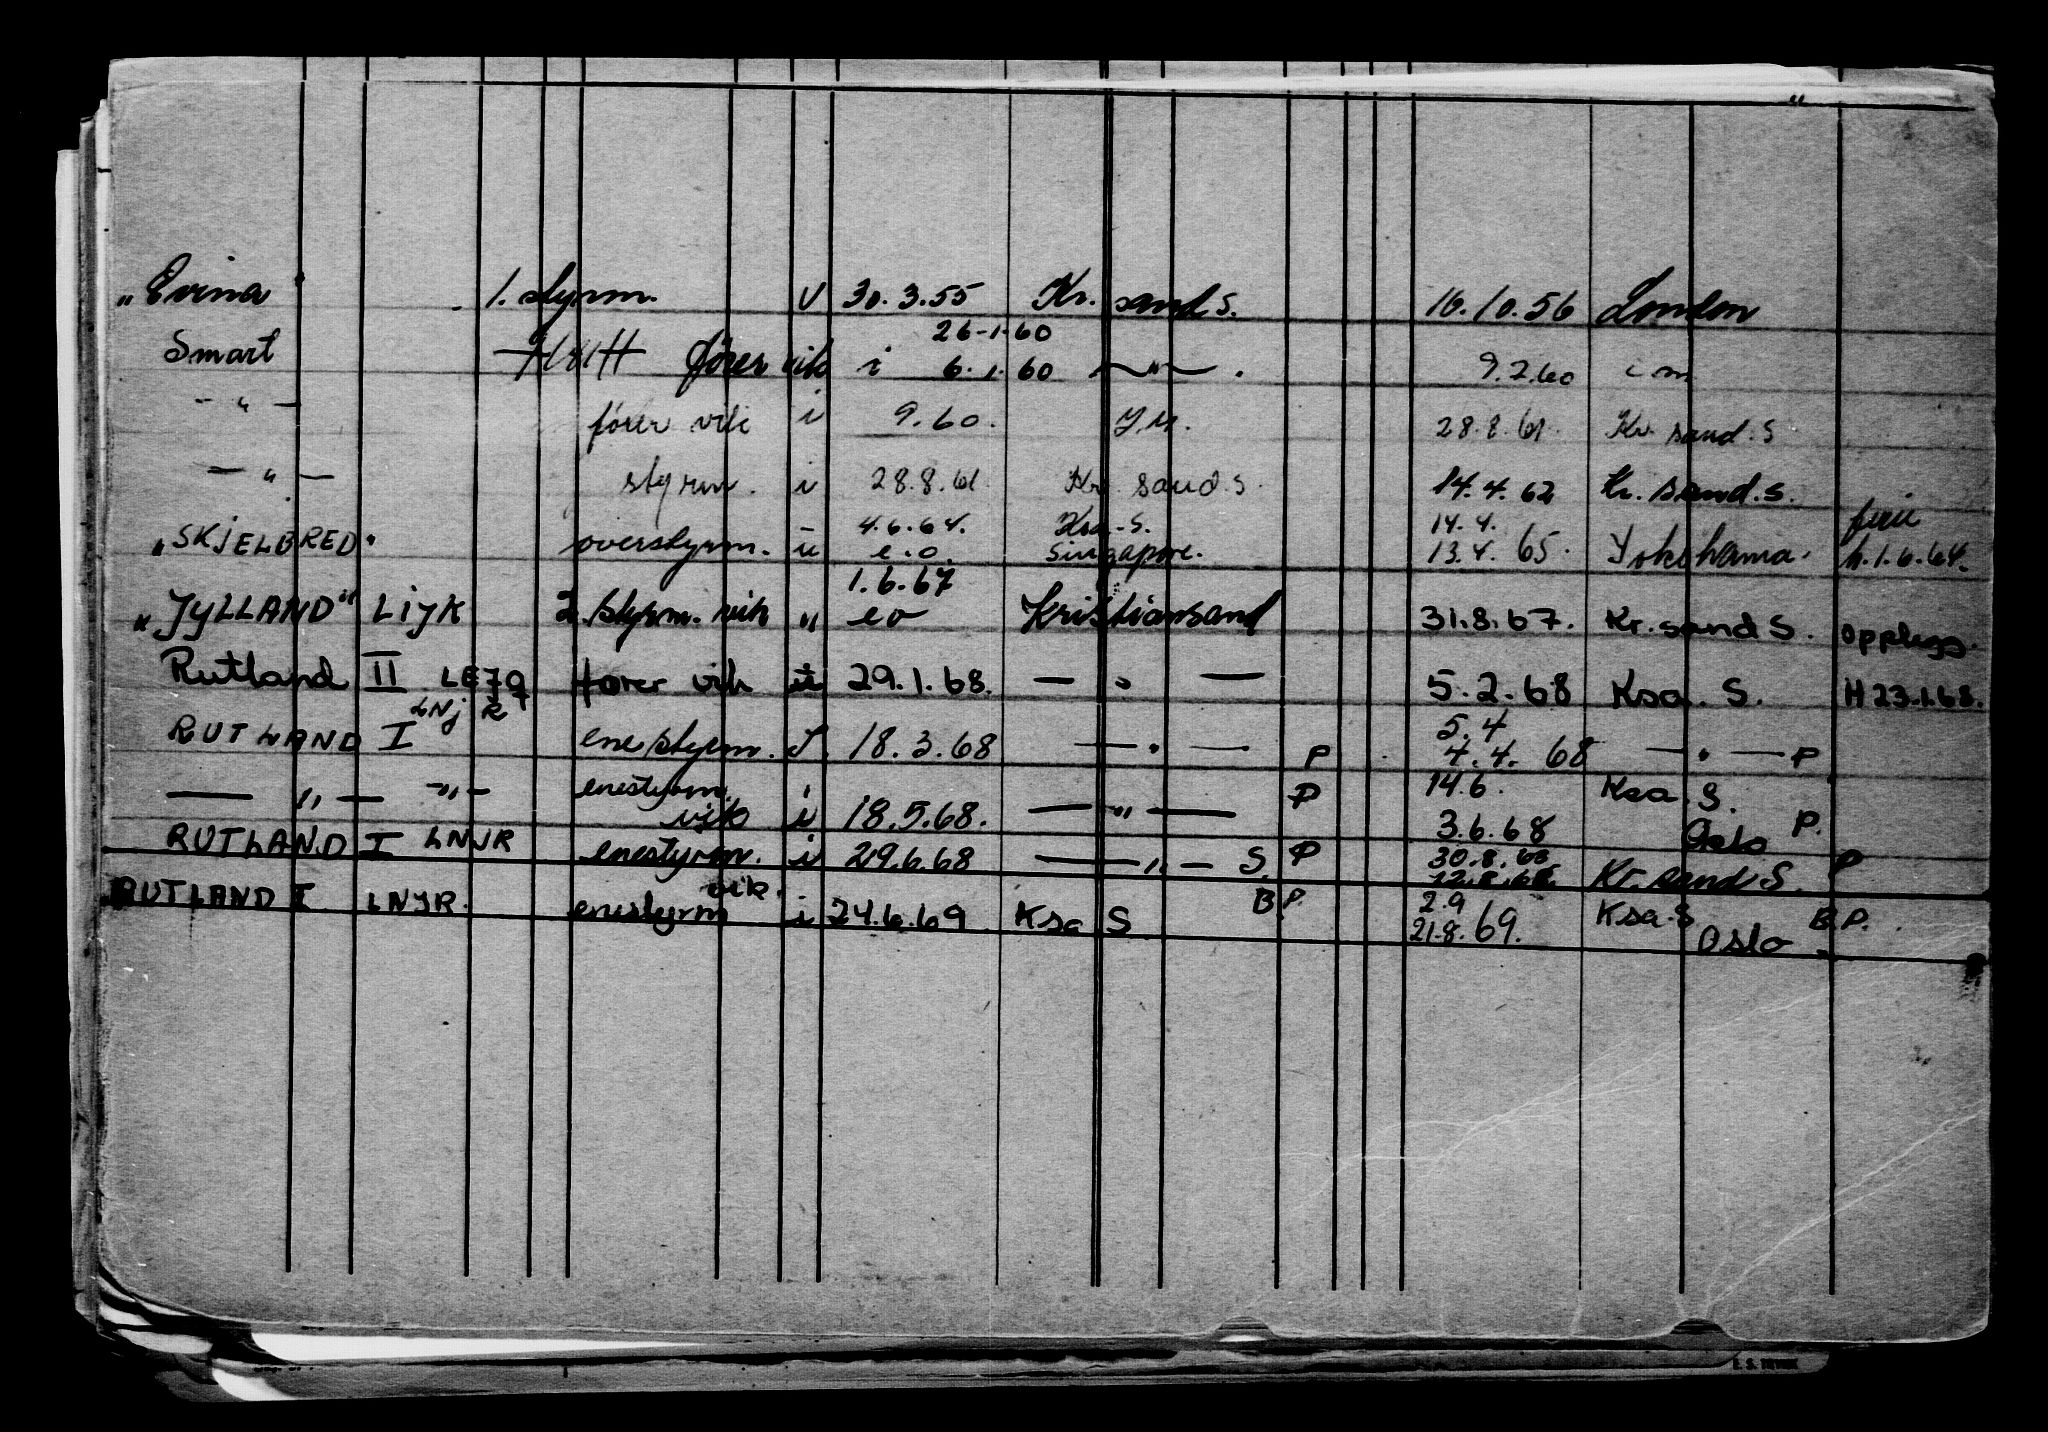 „Evina" 1. styrm. V 30.3.55 Kr. sand S. 16.10.56 London
26-1-60
Smart fører vik i 6.1.60 —"— . 9.2.60 i m
- " - fører vik i 9.60. 28.8.61. Kr. sand. S
— " — styrm. i 28.8.61. Kr. sand. S. 14.4.62 Kr. sand. S.
4.6.64. Ksa. S. 14.4. ferie
„SKJELBRED" overstyrm. u e.o. Singapore. 13.4.65. Yokohama. h.1.6.64.
1.6.67
„JYLLAND" LIJK 2. styrm. vik " eo Kristiansand 31.8.67. Kr. sand S. opplegg.
Rutland II LE7Q fører vik 29.1.68. — " — 5.2.68 Ksa. S. H 23.1.68.
LNJR 5.4
RUTLAND I ene styrm. 18.3.68 — " — P 4.4.68 — " — P
14.6. Ksa. S.
— " — - " - enestyrm. vik i 18.5.68. — " — P 3.6.68 Oslo P.
30.8.68
RUTLAND I LNJR enestyrm. i 29.6.68 — " — S. P 12.8.68. Kr. sand S. P
vik. 2.9 Ksa. S
RUTLAND I LNJR. enestyrm i 24.6.69 Ksa S B P. 21.8.69. Oslo B.P.